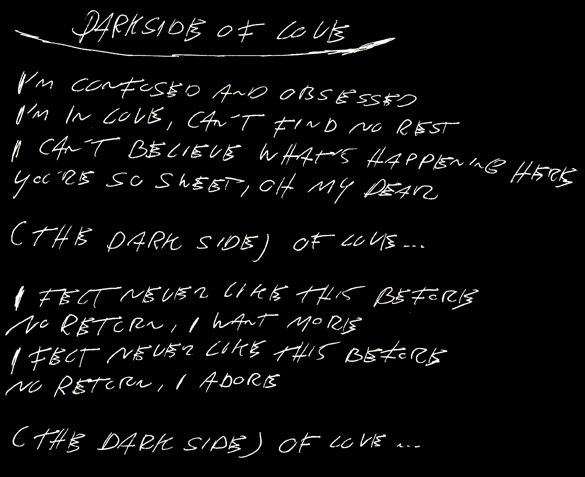 DARKSIDE OF LOVE
I'M CONFUSED AND OBSESSED
I'M IN LOVE, CAN'T FIND NO REST
I CAN'T BELIEVE WHAT'S HAPPENING HERE
YOU'RE SO SWEET, OH MY DEAR
(THE DARK SIDE) OF LOVE...
I FELT NEVER LIKE THIS BEFORE
NO RETURN, I WANT MORE
I FELT NEVER LIKE THIS BEFORE
NO RETURN, I ADORE
(THE DARK SIDE) OF LOVE...